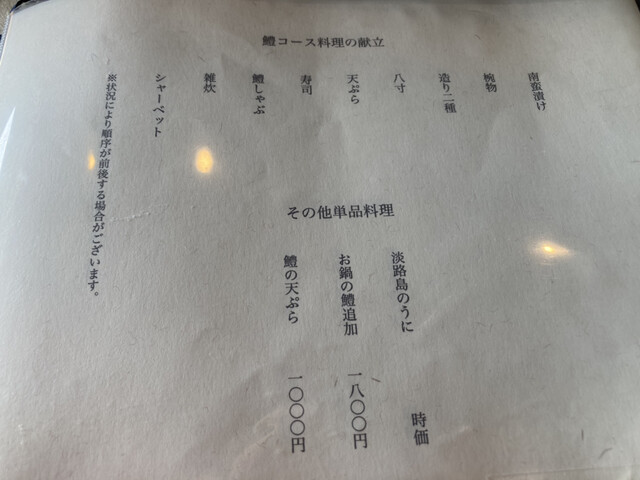 鱧コース料理の献立
南蛮漬け
椀物
造り二種
八寸
天ぷら
寿司
鱧しゃぶ
雑炊
シャーベット
※状況により順序が前後する場合がございます。
その他単品料理
淡路島のうに　時価
お鍋の鱧追加　一八〇〇円
鱧の天ぷら　一〇〇〇円